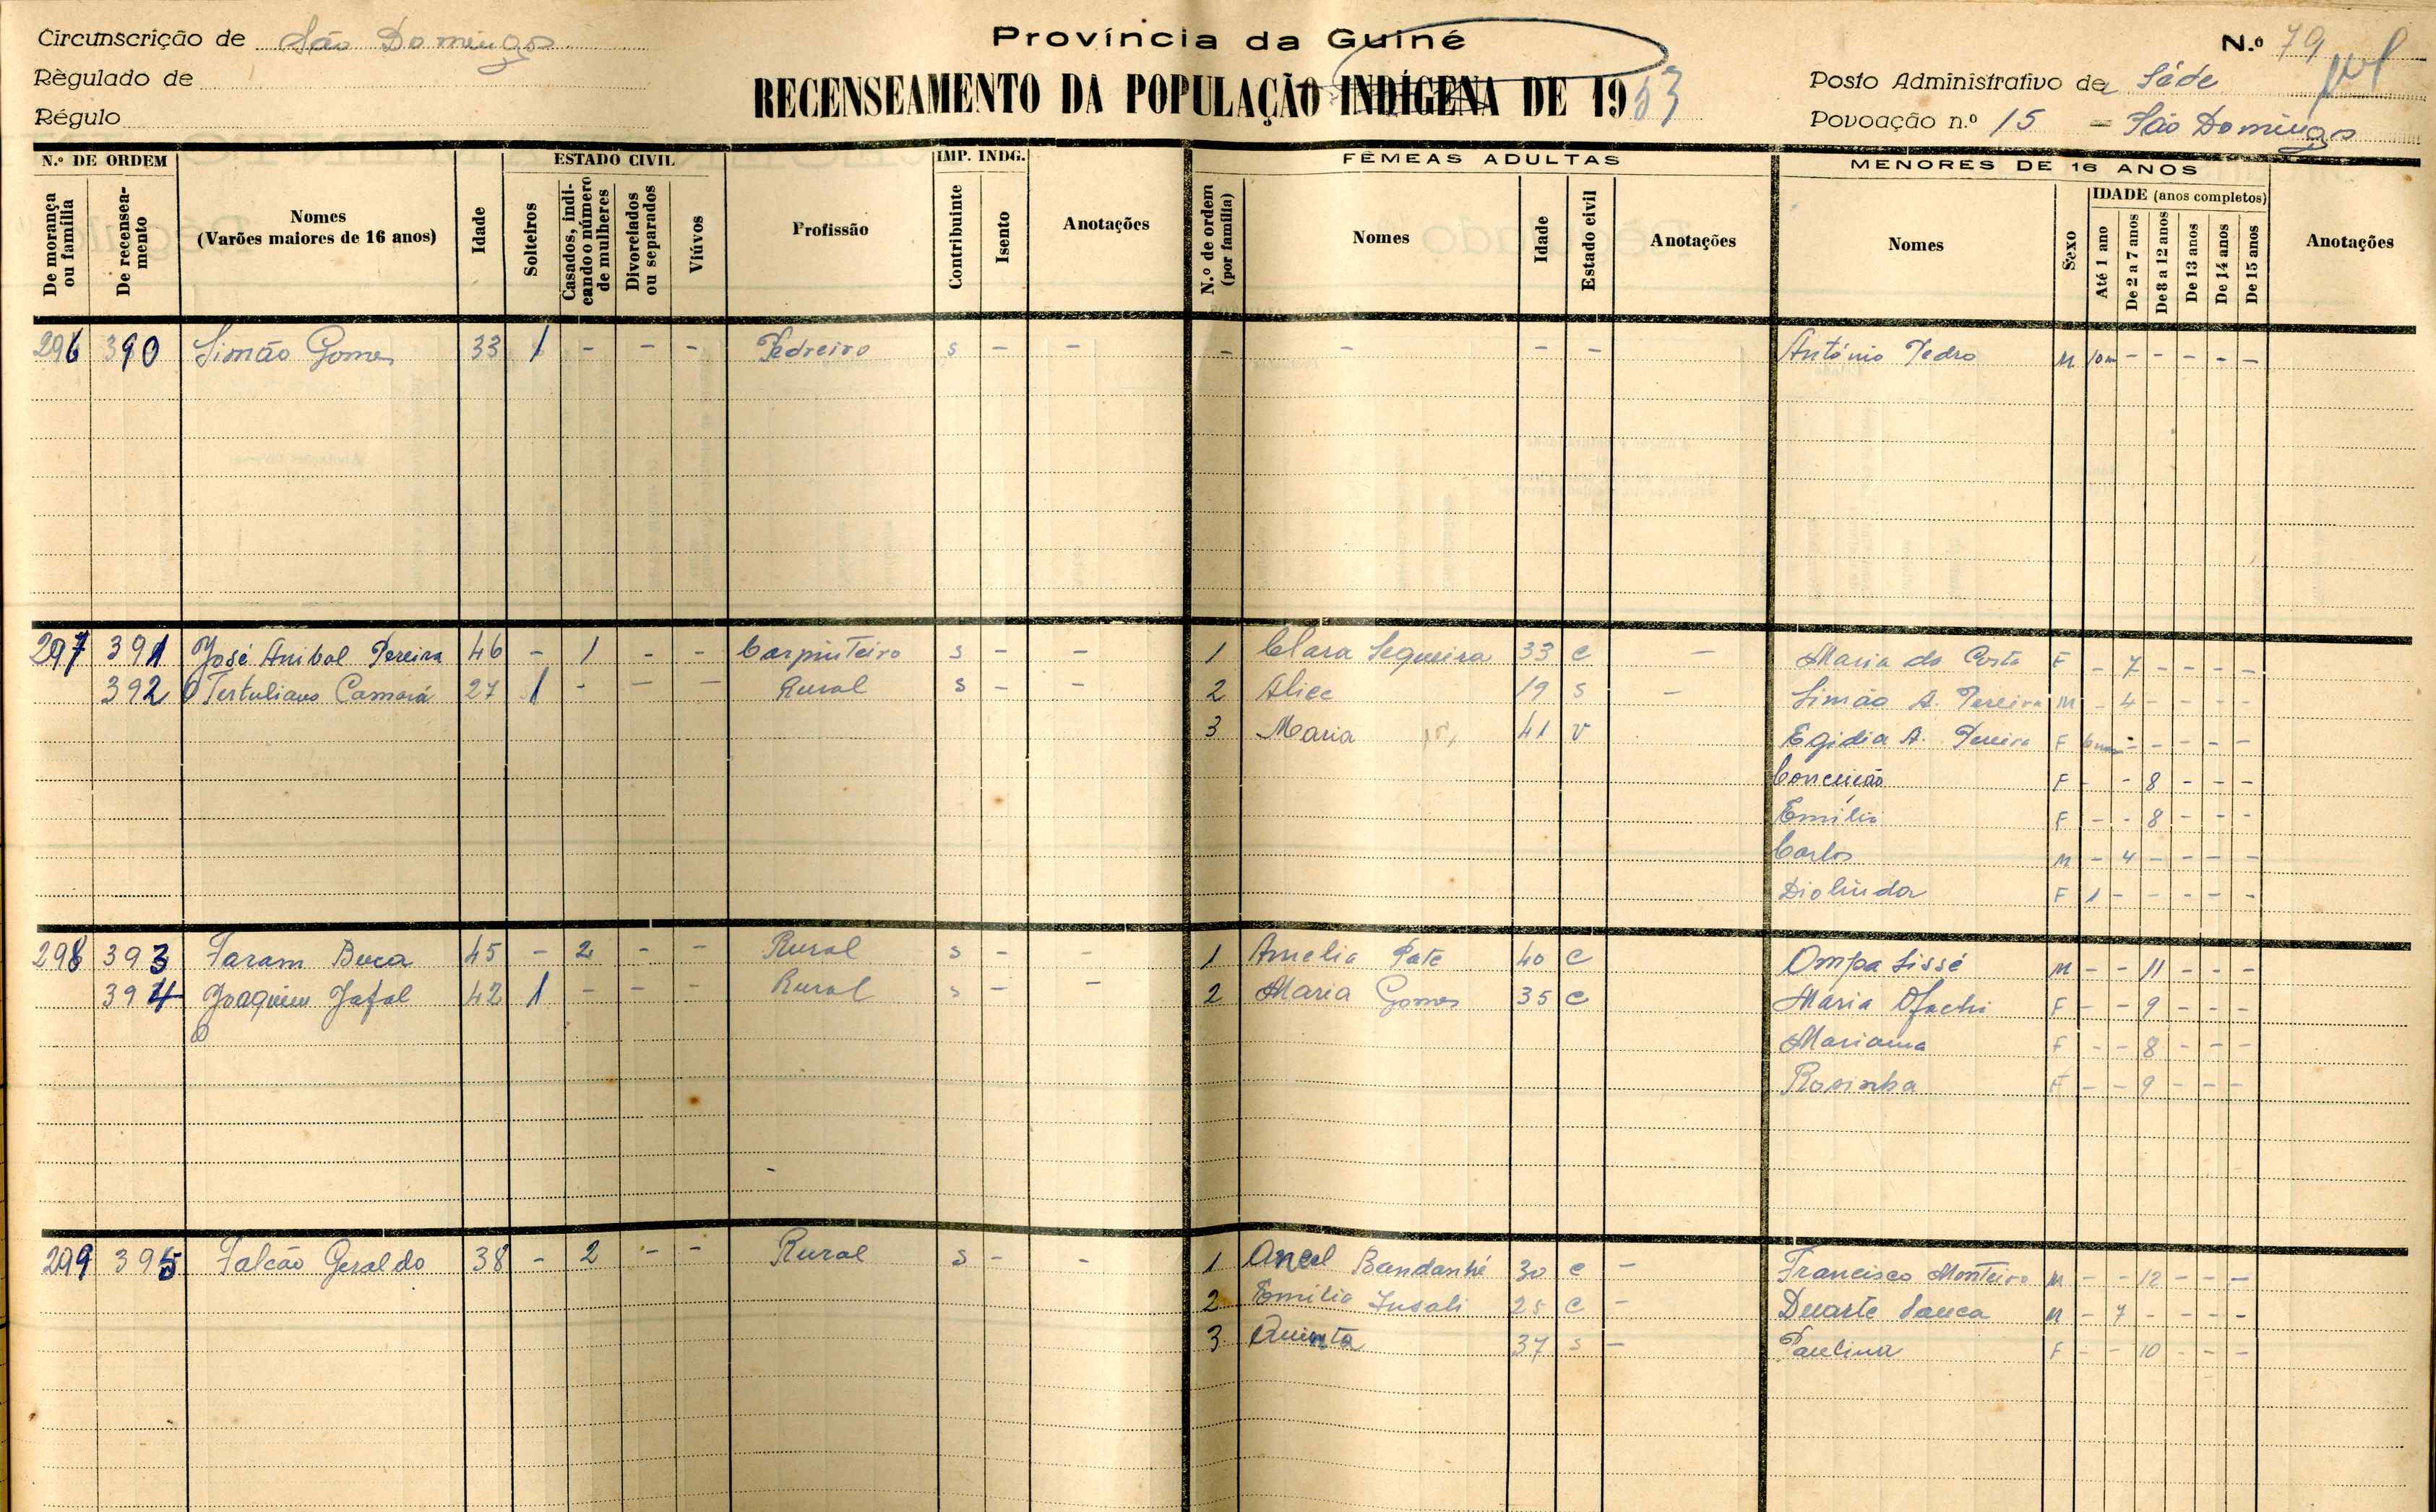 Circunscrição de São Domingos
Règulado de
Régulo
Província da Guiné
RECENSEAMENTO DA POPULAÇÃO INDÍGENA DE 1953
N.º 79
Posto Administrativo de Séde
Povoação n.º 15 = São Domingos
N.º DE ORDEM
De morança ou família
De recensea-mento
Nomes
(Varões maiores de 16 anos)
Idade
ESTADO CIVIL
Solteiros
Casados, indi-cando o número de mulheres
Divorciados ou separados
Viúvos
Profissão
IMP. INDG.
Contribuinte
Isento
Anotações
FÊMEAS ADULTAS
N.º de ordem (por família)
Nomes
Idade
Estado civil
Anotações
MENORES DE 16 ANOS
Nomes
Sexo
IDADE (anos completos)
Até 1 ano
De 2 a 7 anos
De 8 a 12 anos
De 13 anos
De 14 anos
De 15 anos
Anotações
296 390 Simão Gomes 33 1 - - - Pedreiro s - - - - - - António Pedro M 10m - - - - -
297 391 José Anibal Pereira 46 - 1 - - Carpinteiro s - - 1 Clara Sequeira 33 c - Maria da Costa F - 7 - - - -
392 Tertuliano Camará 27 1 - - - Rural s - - 2 Alice 19 s - Simão A. Pereira M - 4 - - - -
3 Maria 41 v Egidia A. Pereira F 6m - - - - -
Conceição F - - 8 - - -
Emília F - - 8 - - -
Carlos M - 4 - - - -
Diolinda F 1 - - - - -
298 393 Faram Buca 45 - 2 - - Rural s - - 1 Amelia Pate 40 c Ompa Sissé M - - 11 - - -
394 Joaquim Jafal 42 1 - - - Rural s - - 2 Maria Gomes 35 c Maria Ofachi F - - 9 - - -
Mariama F - - 8 - - -
Rosinha F - - 9 - - -
299 395 Falcão Geraldo 38 - 2 - - Rural s - - 1 Bandanhé 30 c - Francisco Monteiro M - - 12 - - -
2 Emilia Insali 25 c - Duarte Sanca M - 7 - - - -
3 Quinta 37 s - Paulina F - - 10 - - -